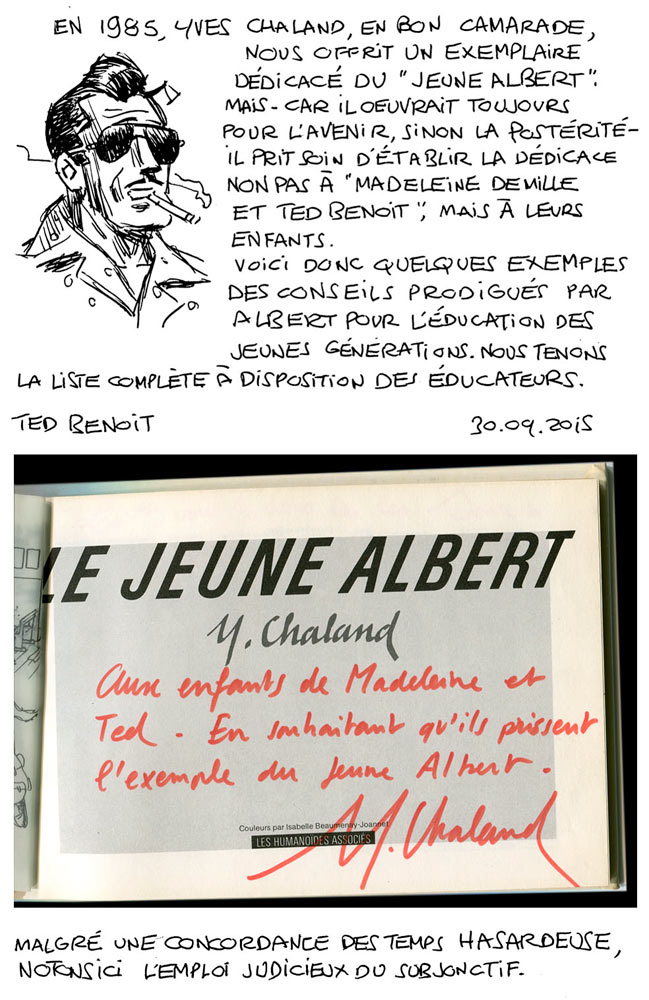 EN 1985, YVES CHALAND, EN BON CAMARADE,
NOUS OFFRIT UN EXEMPLAIRE
DÉDICACÉ DU "JEUNE ALBERT".
MAIS - CAR IL OEUVRAIT TOUJOURS
POUR L'AVENIR, SINON LA POSTÉRITÉ -
IL PRIT SOIN D'ÉTABLIR LA DÉDICACE
NON PAS À "MADELEINE DEMILLE
ET TED BENOIT", MAIS À LEURS
ENFANTS.
VOICI DONC QUELQUES EXEMPLES
DES CONSEILS PRODIGUÉS PAR
ALBERT POUR L'ÉDUCATION DES
JEUNES GÉNÉRATIONS. NOUS TENONS
LA LISTE COMPLÈTE À DISPOSITION DES ÉDUCATEURS.
TED BENOIT 30.09.2015
LE JEUNE ALBERT
Y. Chaland
Aux enfants de Madeleine et
Ted - En souhaitant qu'ils prissent
l'exemple du Jeune Albert.
Couleurs par Isabelle Beaumenay-Joannet
LES HUMANOÏDES ASSOCIÉS
Y. Chaland
MALGRÉ UNE CONCORDANCE DES TEMPS HASARDEUSE,
NOTONS ICI L'EMPLOI JUDICIEUX DU SUBJONCTIF.